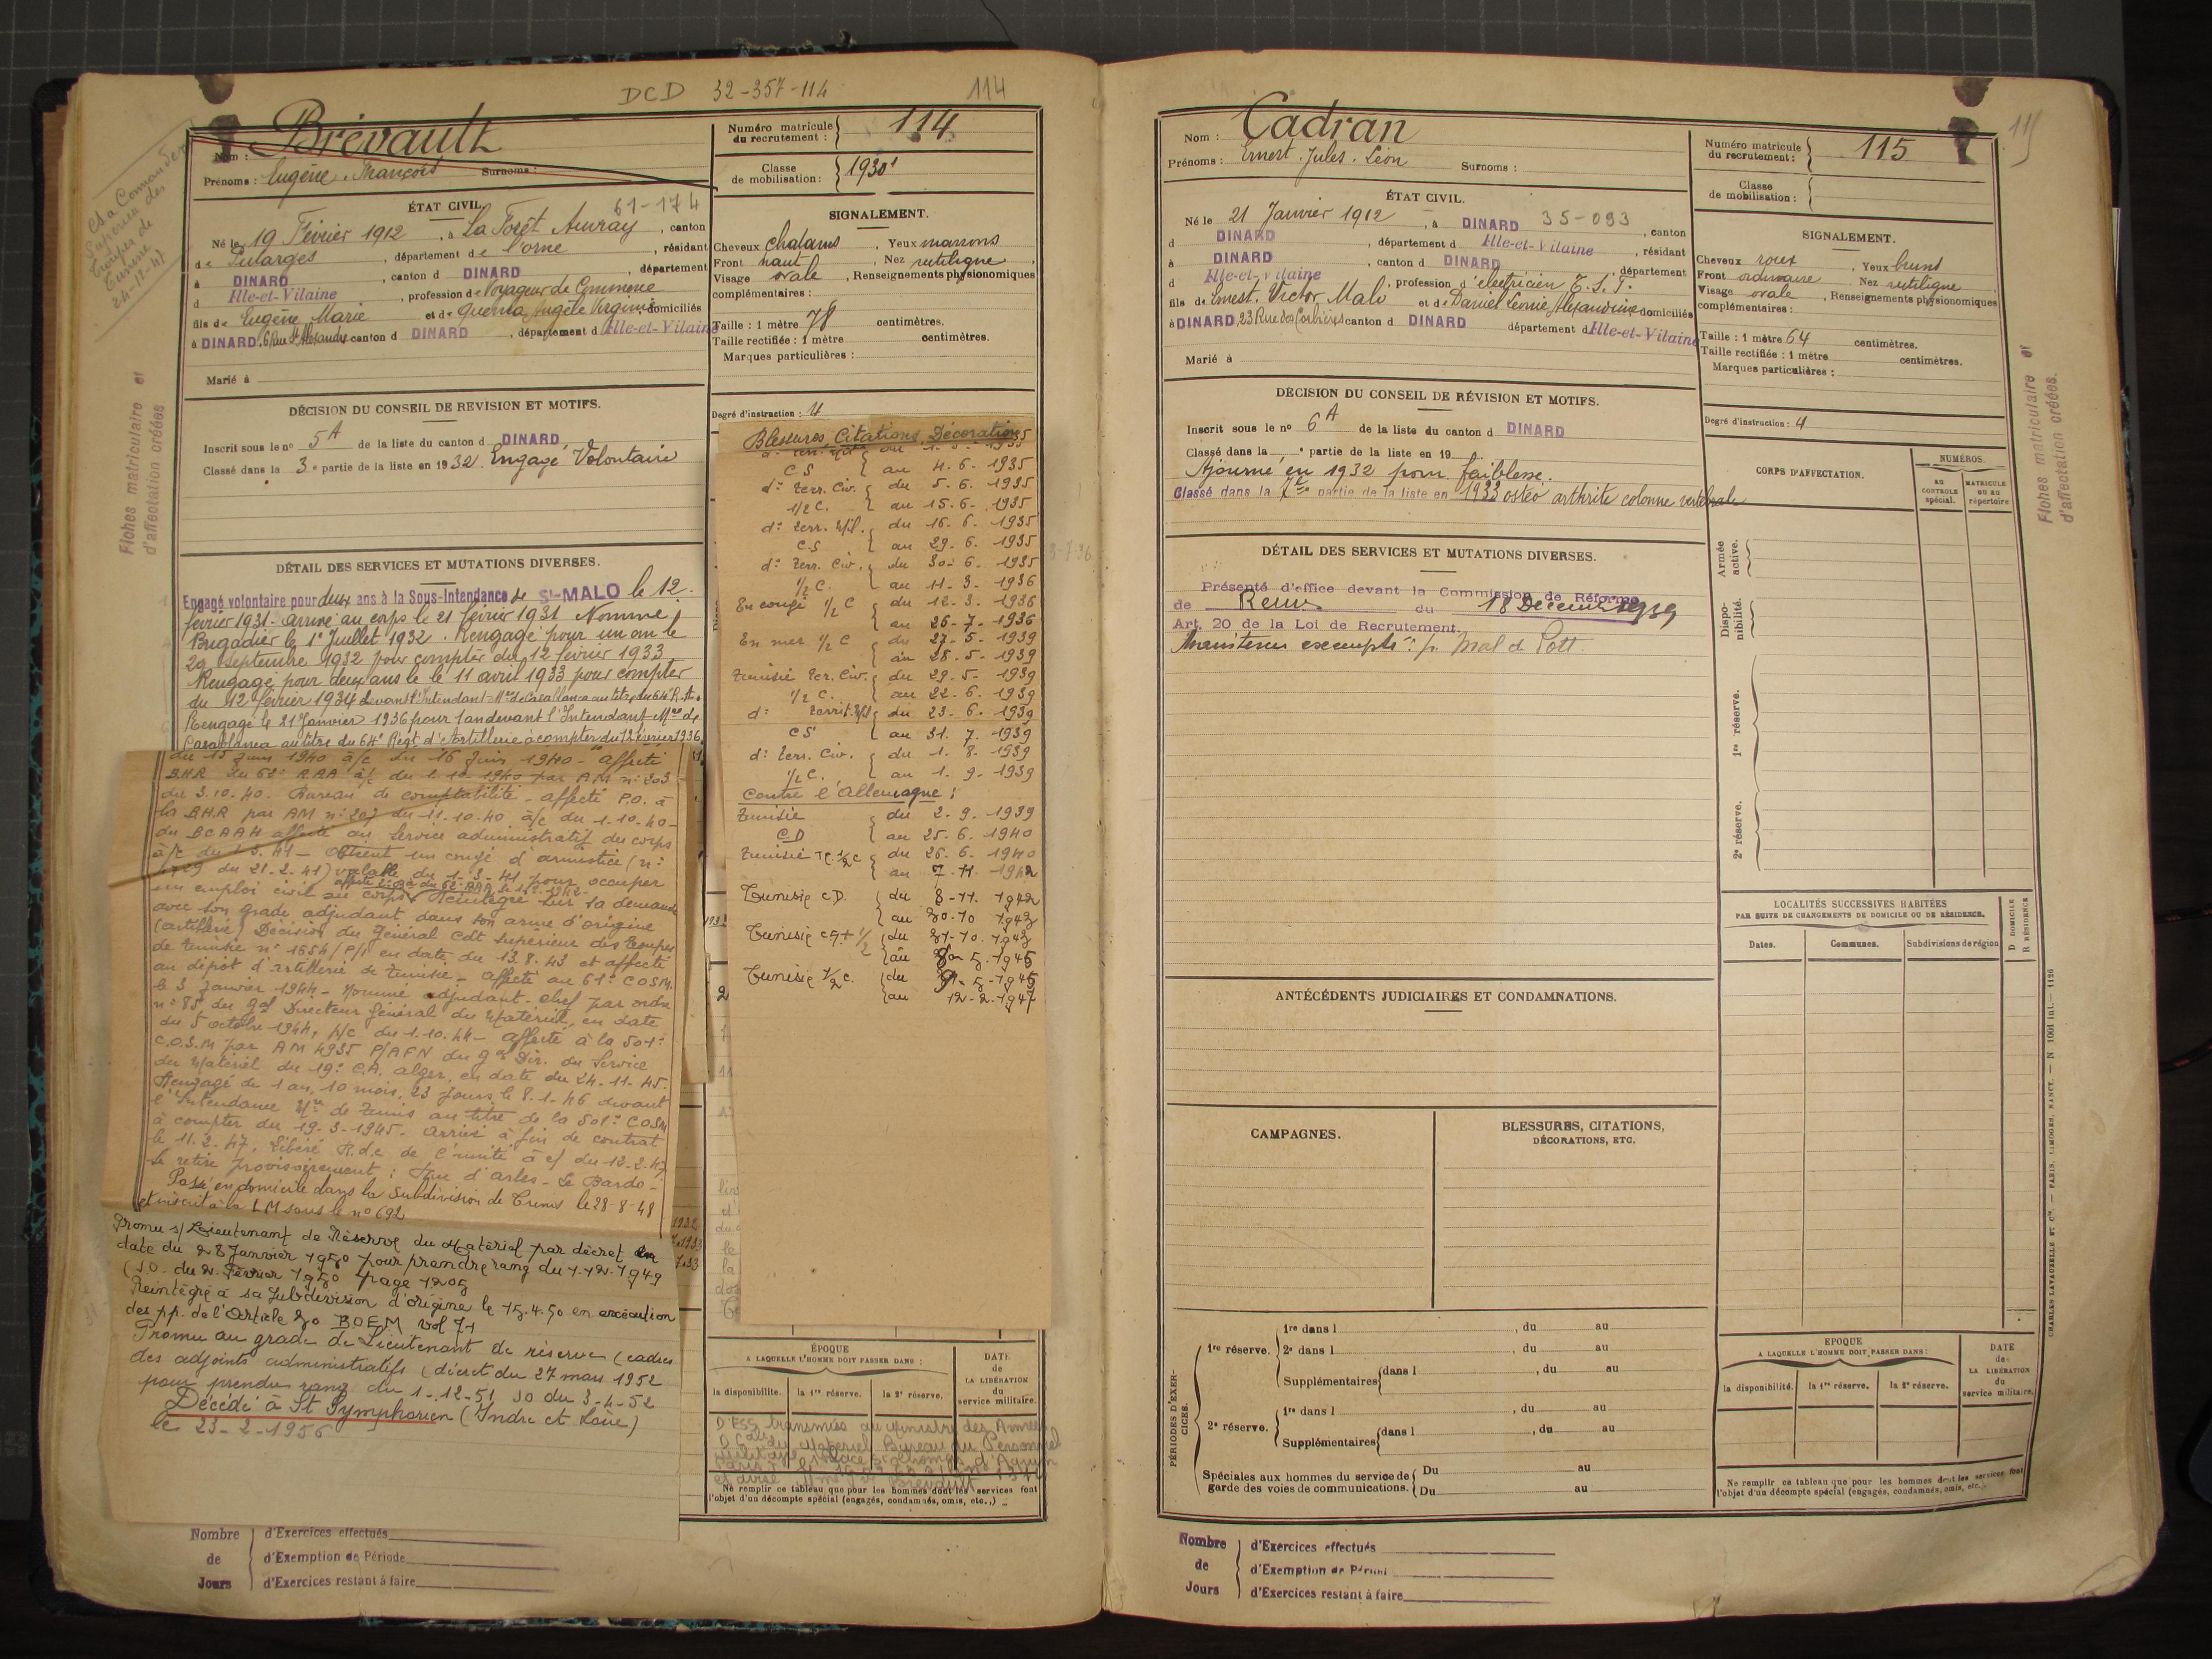 DCD 32-357-114
114
Nom : Brévault
Prénoms : Eugène François Surnoms :
Numéro matricule du recrutement : 114
Classe de mobilisation : 1930
ÉTAT CIVIL.
61-174
Né le 19 Février 1912, à La Forêt Auvray, canton
de Putanges, département de l'orne, résidant
à DINARD, canton d DINARD, département
d Ille-et-Vilaine, profession de Voyageur de Commerce
fils de Eugène Marie et de Angèle Virginie domiciliés
à DINARD, 6 Rue St Alexandre canton d DINARD, département d Ille-et-Vilaine
Marié à
SIGNALEMENT.
Cheveux chatains, Yeux marrons
Front haut, Nez rectiligne,
Visage ovale, Renseignements physionomiques
complémentaires :
Taille : 1 mètre 78 centimètres.
Taille rectifiée : 1 mètre centimètres.
Marques particulières :
Degré d'instruction : 4
Csa Commandant
Supérieur des
troupes de
Tunisie
24-12-47
Fiches matriculaire et
d'affectation créées
DÉCISION DU CONSEIL DE REVISION ET MOTIFS.
Inscrit sous le no 5A de la liste du canton d DINARD
Classé dans la 3e partie de la liste en 1932. Engagé Volontaire
DÉTAIL DES SERVICES ET MUTATIONS DIVERSES.
Engagé volontaire pour deux ans à la Sous-Intendance de St-MALO le 12
février 1931. arrivé au corps le 21 février 1931 Nommé
Brigadier le 1er Juillet 1932. Rengagé pour un an le
29 septembre 1932 pour compter du 12 février 1933
Rengagé pour deux ans le le 11 avril 1933 pour compter
du 12 février 1934 devant l'Intendant Mre de Casablanca au titre du 64e R.A.
Rengagé le 21 Janvier 1936 pour 1 an devant l'Intendant Mre de
Casablanca au titre du 64e Régt d'Artillerie à compter du 12 février 1936
du 15 Juin 1940 à/c du 16 Juin 1940 - affecté
B.H.R du 62e RAA à/c du 1.10.1940 par AM no 203
du 3.10.40. Bureau de comptabilité - affecté P.O. à
la B.H.R par AM no 207 du 11.10.40 à/c du 1.10.40-
du BCAAH affecté au Service administratif du corps
à/c du 1.3.41 - Obtient un congé d'armistice (no
du 21.2.41) valable du 1-3-41 pour occuper
un emploi civil au corps. Réintégré sur sa demande
avec son grade adjudant dans son arme d'origine
(artillerie) Décision du Général Cdt Supérieur des troupes
de Tunisie no 1654/P/1 en date du 13.8.43 et affecté
au dépôt d'artillerie de Tunisie - affecté au 61e COSM.
le 3 Janvier 1944 - nommé adjudant-chef par ordre
no 85 du gal Directeur Général du Matériel, en date
du 5 octobre 1944, p/c du 1.10.44 - affecté à la 501e
C.O.S.M par AM 4935 P/AFN du gal Dir. du Service
du Matériel du 19e C.A. alger, en date du 24-11-45.
Rengagé de 1 an, 10 mois, 23 Jours le 8-1-46 devant
l'Intendance Mre de Tunis au titre de la 501e COSM
à compter du 19-3-1945. Arrivé à fin de contrat
le 11.2.47. Libéré R.d.c de l'unité à c/ du 12.2.47.
Se retire provisoirement : Rue d'arles - Le Bardo -
Passé en domicile dans la Subdivision de Tunis le 28-8-48
et inscrit à la LM sous le no 692
Promu s/Lieutenant de Réserve du Matériel par décret en
date du 28 Janvier 1950 pour prendre rang du 1-12-1949
(J.O. du 2 Février 1950 page 1205
Réintégré à sa Subdivision d'origine le 15.4.50 en exécution
des pp. de l'Article 30 BOEM vol 71
Promu au grade de Lieutenant de réserve (cadres
des adjoints administratifs (décret du 27 mars 1952
pour prendre rang du 1-12-51 JO du 3-4-52
Décédé à St Symphorien (Indre et Loire)
le 23-2-1956
Blessures, Citations, Décorations
CS au 4.6.1935
do Terr. Civ. du 5.6.1935
1/2 C. au 15.6.1935
do Terr. Mil. du 16.6.1935
C.S au 29.6.1935
do Terr. Civ. du 30.6.1935
1/2 C. au 11.3.1936
En congé 1/2 C du 12.3.1936
au 26-7-1936
En mer 1/2 C du 27-5-1939
au 28.5-1939
Tunisie Ter. Civ. du 29-5-1939
1/2 C. au 22.6.1939
do Territ. Mil du 23.6.1939
CS au 31.7.1939
do Terr. Civ. du 1.8.1939
1/2 C. au 1.9.1939
Contre l'Allemagne :
Tunisie du 2.9.1939
C.D au 25.6.1940
Tunisie TC 1/2 C du 26.6.1940
au 7-11-1942
Tunisie C.D. du 8-11.1942
au 30.10.1943
Tunisie CG + 1/2 du 31-10.1943
au 8-5-1945
Tunisie 1/2 C. du 9-5-1945
au 12-2-1947
ÉPOQUE
A LAQUELLE L'HOMME DOIT PASSER DANS :
la disponibilité. la 1re réserve. la 2e réserve.
DATE de LA LIBÉRATION du service militaire.
Ne remplir ce tableau que pour les hommes dont les services font
l'objet d'un décompte spécial (engagés, condamnés, omis, etc.,)
Nombre de Jours
d'Exercices effectués
d'Exemption de Période
d'Exercices restant à faire
115
Nom : Cadran
Prénoms : Ernest. Jules. Léon Surnoms :
Numéro matricule du recrutement : 115
Classe de mobilisation :
ÉTAT CIVIL.
Né le 21 Janvier 1912, à DINARD 35-093, canton
d DINARD, département d Ille-et-Vilaine, résidant
à DINARD, canton d DINARD, département
d Ille-et-Vilaine, profession d'électricien T.S.F.
fils de Ernest. Victor Malo et de Daniel Léonie Alexandrine domiciliés
à DINARD, 23 Rue des Corbières canton d DINARD département d Ille-et-Vilaine
Marié à
SIGNALEMENT.
Cheveux roux, Yeux bruns
Front ordinaire, Nez rectiligne
Visage ovale, Renseignements physionomiques
complémentaires :
Taille : 1 mètre 64 centimètres.
Taille rectifiée : 1 mètre centimètres.
Marques particulières :
Degré d'instruction : 4
DÉCISION DU CONSEIL DE RÉVISION ET MOTIFS.
Inscrit sous le no 6A de la liste du canton d DINARD
Classé dans la e partie de la liste en 19
Ajourné en 1932 pour faiblesse.
Classé dans la 7e partie de la liste en 1933 ostéo arthrite colonne vertébrale
DÉTAIL DES SERVICES ET MUTATIONS DIVERSES.
Présenté d'office devant la Commission de Réforme
de Rennes du 18 Décembre 1939
Art. 20 de la Loi de Recrutement.
Maintenu exempté : p. Mal de Pott.
CORPS D'AFFECTATION.
NUMÉROS.
AU CONTROLE spécial.
MATRICULE OU AU répertoire
Armée active.
Disponibilité.
1re réserve.
2e réserve.
Fiches matriculaire et
d'affectation créées.
LOCALITÉS SUCCESSIVES HABITÉES
PAR SUITE DE CHANGEMENTS DE DOMICILE OU DE RÉSIDENCE.
Dates. Communes. Subdivisions de région
D DOMICILE
R RÉSIDENCE
ANTÉCÉDENTS JUDICIAIRES ET CONDAMNATIONS.
CAMPAGNES.
BLESSURES, CITATIONS,
DÉCORATIONS, ETC.
PÉRIODES D'EXERCICES.
1re réserve. 1re dans l , du au
2e dans l , du au
Supplémentaires dans l , du au
2e réserve. 1re dans l , du au
Supplémentaires dans l , du au
Spéciales aux hommes du service de garde des voies de communications. Du au
Du au
EPOQUE
A LAQUELLE L'HOMME DOIT PASSER DANS :
la disponibilité. la 1re réserve. la 2e réserve.
DATE de LA LIBÉRATION du service militaire.
Ne remplir ce tableau que pour les hommes dont les services font
l'objet d'un décompte spécial (engagés, condamnés, omis, etc.).
CHARLES LAVAUZELLE ET Cie. — PARIS, LIMOGES, NANCY. — N 1001 int.— 1126
Nombre de Jours
d'Exercices effectués
d'Exemption de Période
d'Exercices restant à faire